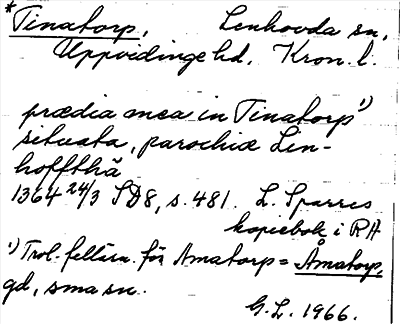 * Tinatorp, Lenhovda sn,
Uppvidinge hd, Kron. l.
prædia mea in Tinatorp ¹)
situata, parochiæ Lin-
hoffthā
1364 24/3 SD8, s. 481. L. Sparres
kopiebok i RA
¹) Trol. fellärn. för Amatorp = Åmatorp,
gd, sma sn.
G.L. 1966.